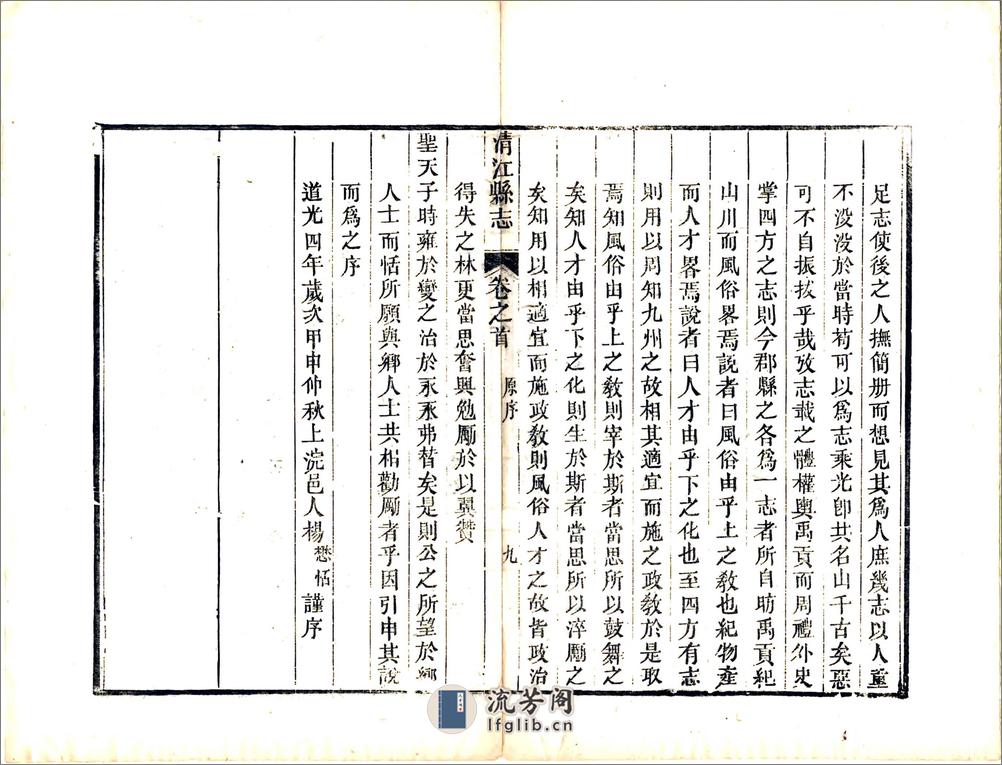 足志使後之人撫簡册而想見其爲人庶幾志以人重
不没没於當時苟可以爲志乘光卽共名山千古矣惡
可不自振拔乎哉攷志载之體權輿禹貢而周禮外史
掌四方之志則今郡縣之各爲一志者所自昉禹貢紀
山川而風俗畧焉說者曰風俗由乎上之敎也紀物產
而人才畧焉說者曰人才由乎下之化也至四方有志
則用以周知九州之故相其適宜而施之政敎於是取
焉知風俗由乎上之敎則宰於斯者當思所以鼓舞之
矣知人才由乎下之化則生於斯者當思所以淬厲之
矣知用以相適宜而施政敎則風俗人才之故皆政治
清江縣志 卷之首 原序 九
得失之林更當思奮興勉厲於以翼贊
聖天子時雍於變之治於永永弗替矣是則公之所望於鄉
人士而恬所願與鄉人士共相勸厲者乎因引申其說
而爲之序
道光四年歲次甲申仲秋上浣邑人楊懋恬謹序
流芳阁
lfglib.cn